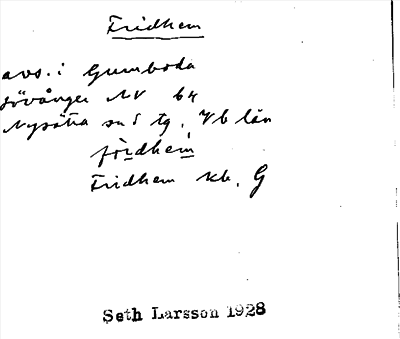 Fridhem
avs. i Gumboda
Lövånger NV 64
Nysätra sn S tg. Vb län
Fridhem kb. G
Seth Larsson 1928